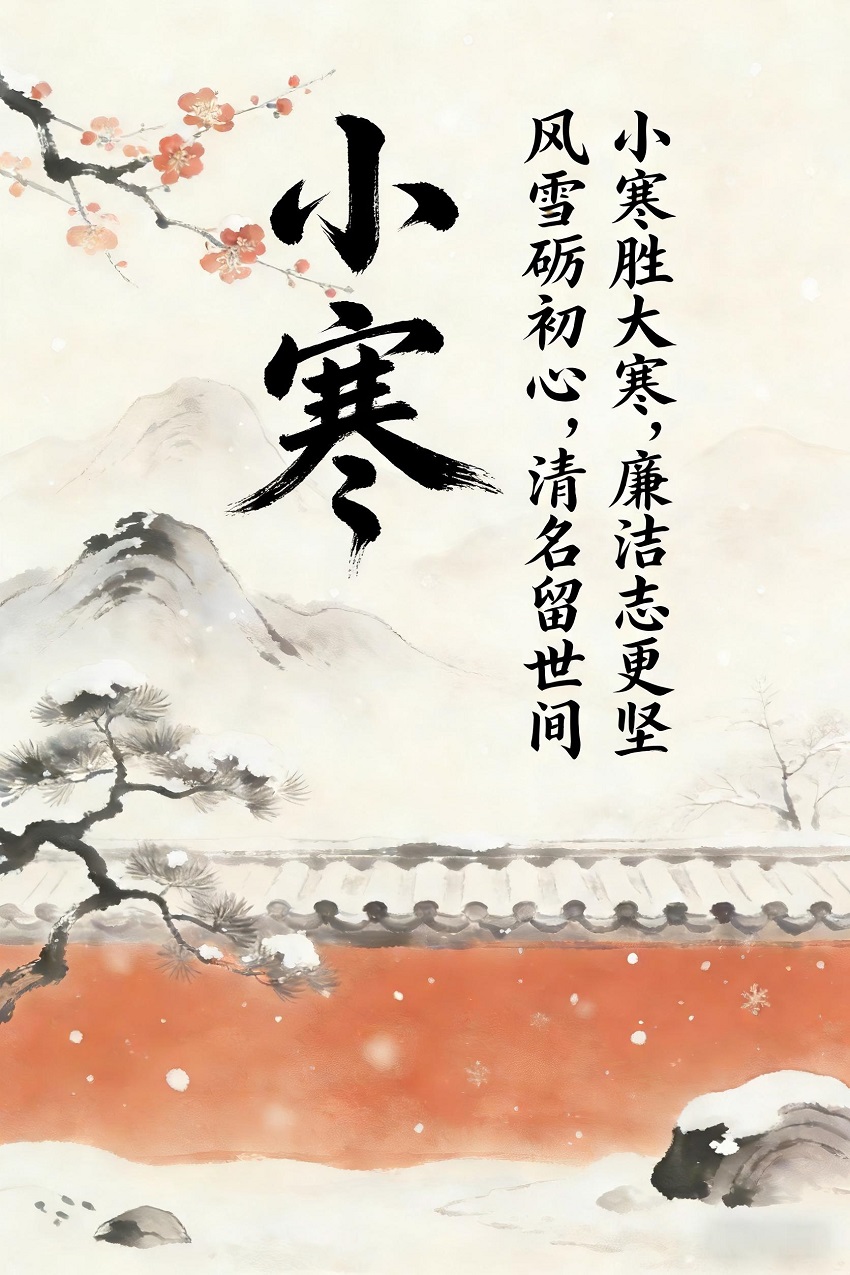 小寒
小寒胜大寒，廉洁志更坚
风雪砺初心，清名留世间